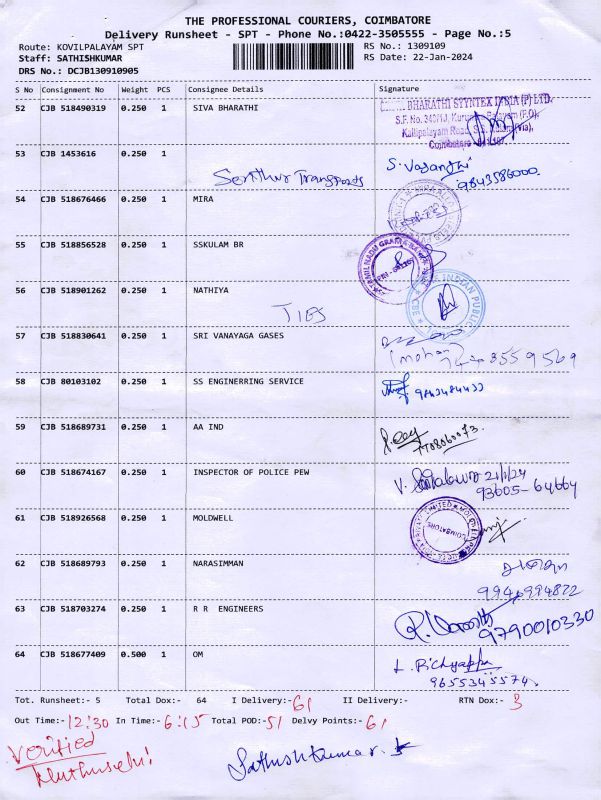 THE PROFESSIONAL COURIERS, COIMBATORE
Delivery Runsheet - SPT - Phone No.:0422-3505555 - Page No.:5
Route: KOVILPALAYAM SPT
RS No.: 1309109
Staff: SATHISHKUMAR
RS Date: 22-Jan-2024
DRS No.: DCJB130910905
S No Consignment No Weight PCS Consignee Details Signature
52 CJB 518490319 0.250 1 SIVA BHARATHI
BHARATHI STYNTEX INDIA (P) LTD.
S.F. No.
Kallipalayam Road,
Coimbatore
53 CJB 1453616 0.250 1
Senthur Transports
S. Vasanthi
9843586000
54 CJB 518676466 0.250 1 MIRA
55 CJB 518856528 0.250 1 SSKULAM BR
TAMIL NADU GRAMA BANK
56 CJB 518901262 0.250 1 NATHIYA
TIPS
INDIAN PUBLIC
CBE
57 CJB 518830641 0.250 1 SRI VANAYAGA GASES
(mohan)
58 CJB 80103102 0.250 1 SS ENGINERRING SERVICE
59 CJB 518689731 0.250 1 AA IND
7708060073
60 CJB 518674167 0.250 1 INSPECTOR OF POLICE PEW
21/1/24
93605-64664
61 CJB 518926568 0.250 1 MOLDWELL
COIMBATORE
62 CJB 518689793 0.250 1 NARASIMMAN
63 CJB 518703274 0.250 1 R R ENGINEERS
9790010330
64 CJB 518677409 0.500 1 OM
L. Pichyappa
9655345574
Tot. Runsheet:- 5 Total Dox:- 64 I Delivery:- 61 II Delivery:- RTN Dox:- 3
Out Time:- 12:30 In Time:- 6:15 Total POD:- 51 Delvy Points:- 61
Verified
Muthuselvi
Sathishkumar.